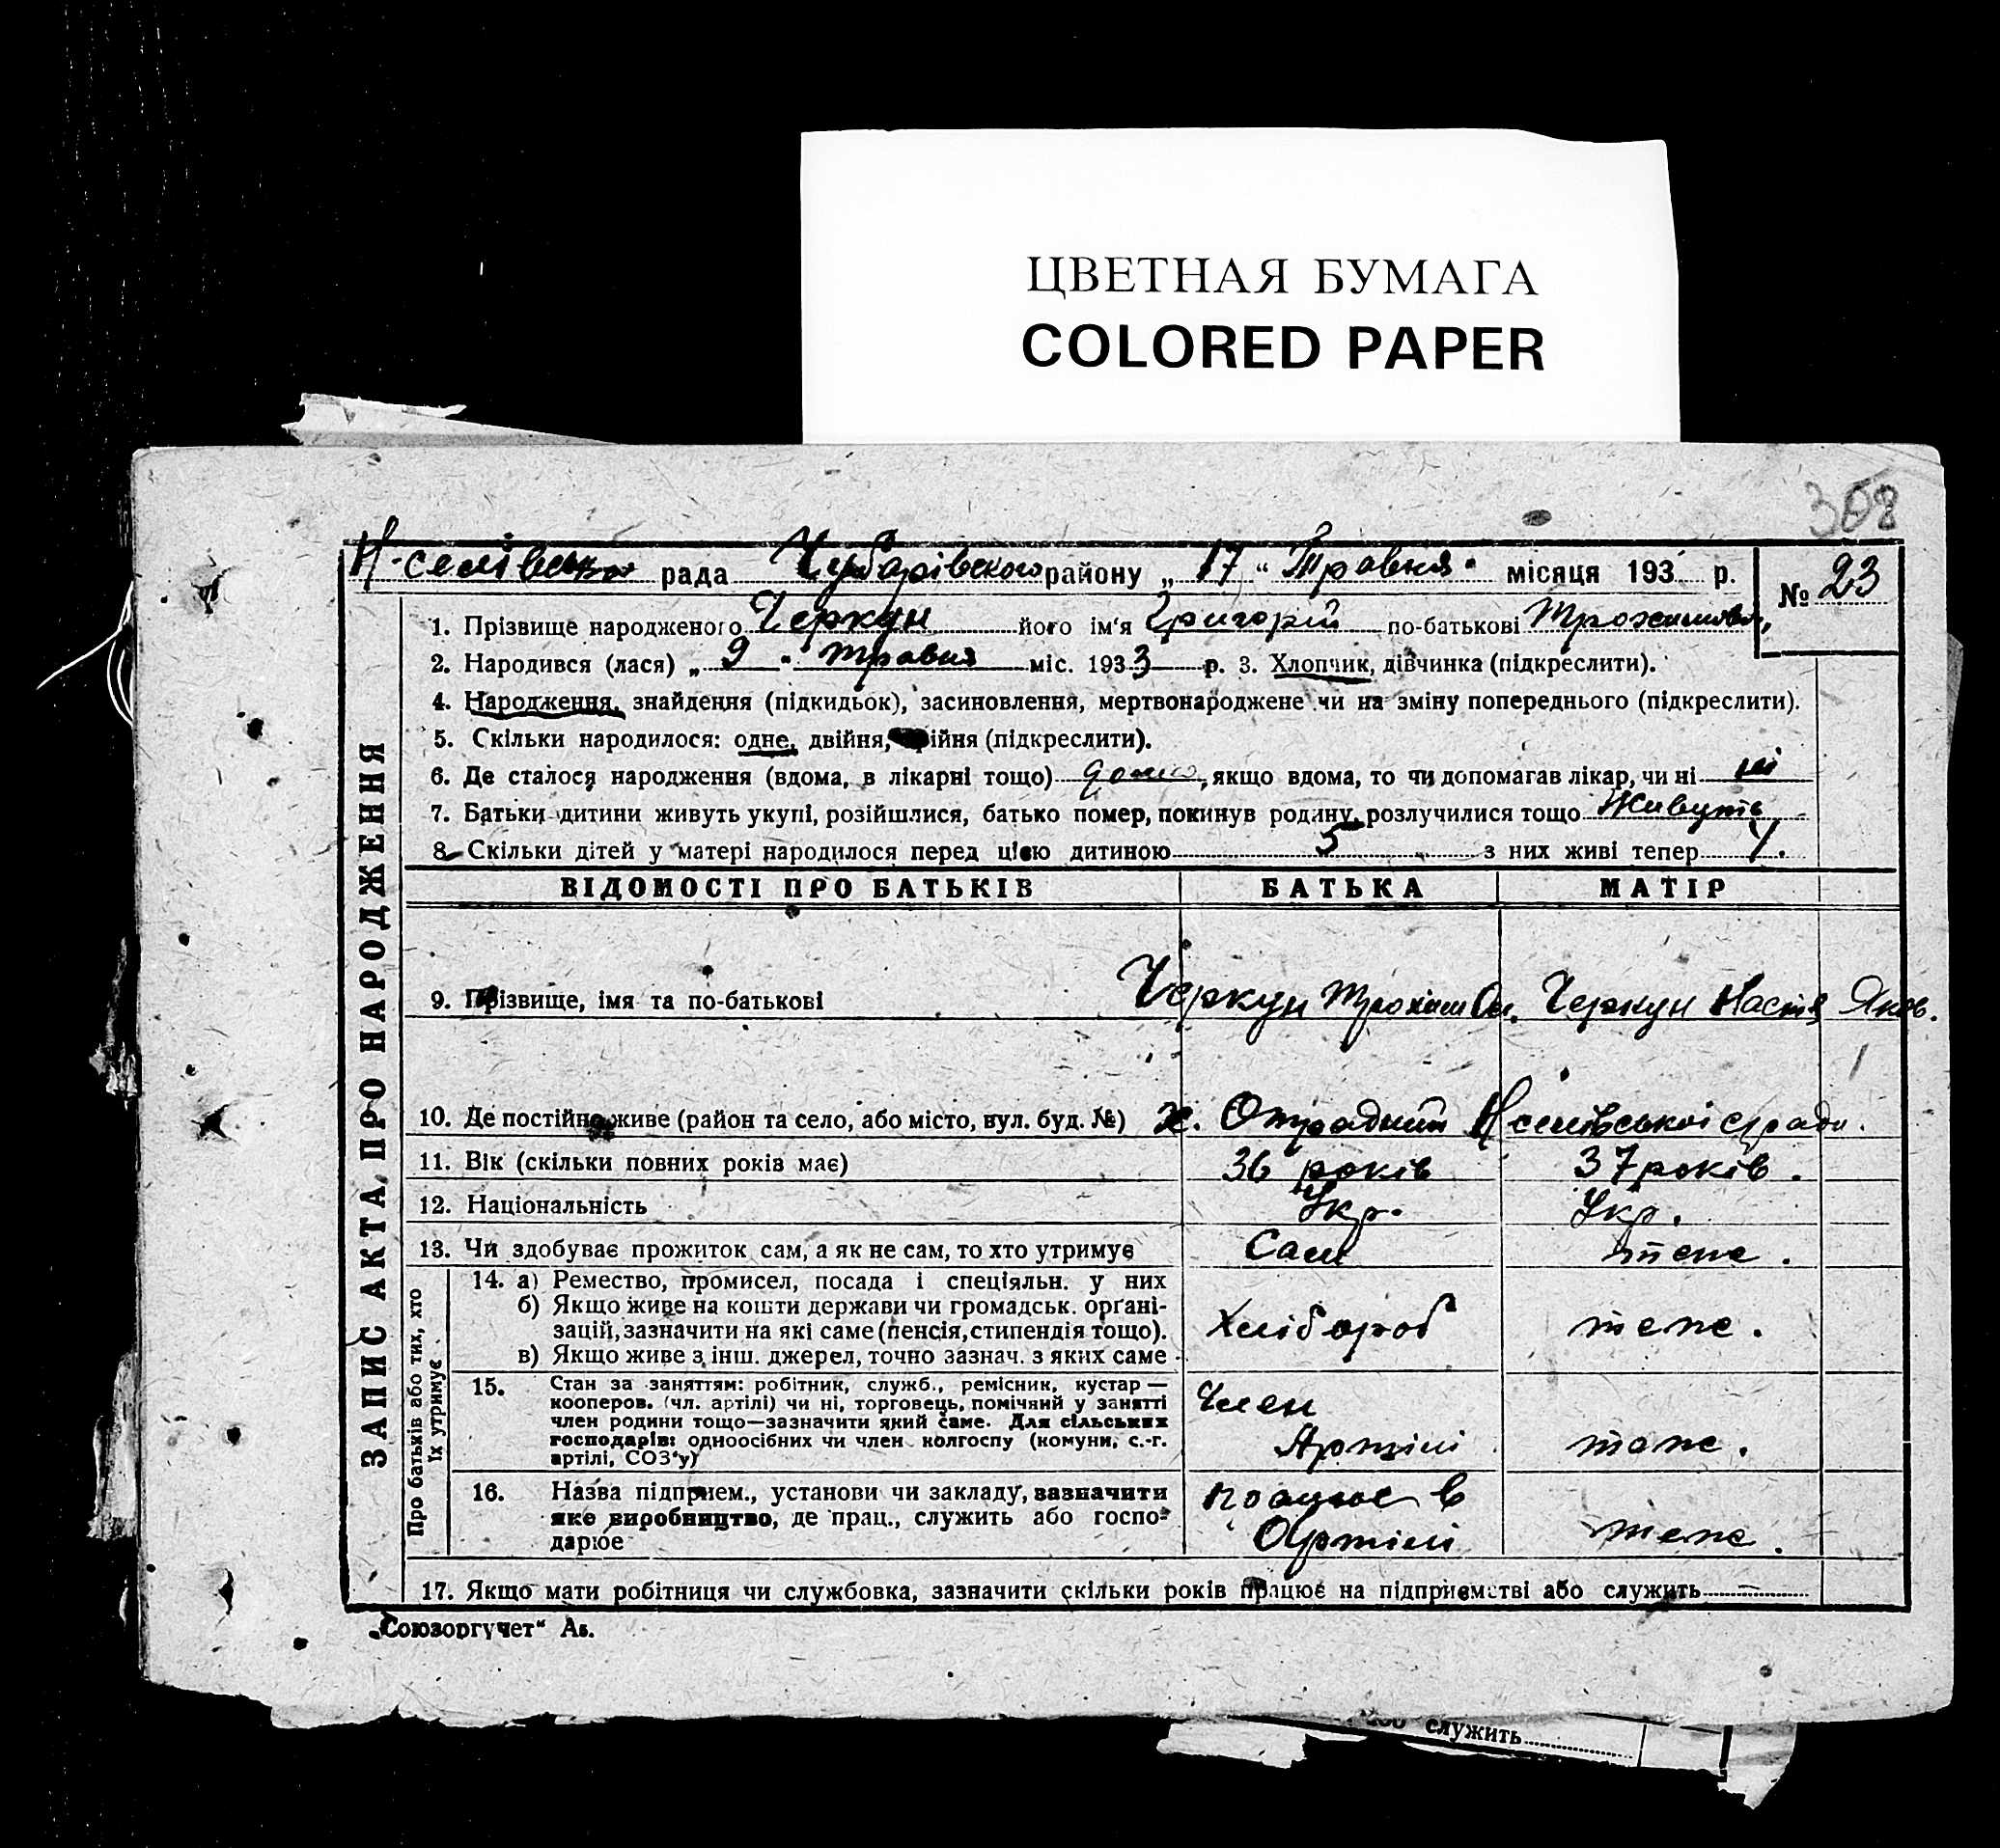 ЦВЕТНАЯ БУМАГА
COLORED PAPER
308
Н-селівська рада Чубарівського району „ 17 “ Травня місяця 193 р.
№ 23
1. Прізвище народженого Черкун його ім'я Григорій по-батькові
2. Народився (лася) „ 9 “ травня міс. 1933 р. 3. Хлопчик, дівчинка (підкреслити).
4. Народження, знайдення (підкидьок), засиновлення, мертвонароджене чи на зміну попереднього (підкреслити).
5. Скільки народилося: одне, двійня, трійня (підкреслити).
6. Де сталося народження (вдома, в лікарні тощо) дома, якщо вдома, то чи допомагав лікар, чи ні ні
7. Батьки дитини живуть укупі, розійшлися, батько помер, покинув родину, розлучилися тощо Живуть
8. Скільки дітей у матері народилося перед цією дитиною 5 з них живі тепер
ВІДОМОСТІ ПРО БАТЬКІВ БАТЬКА МАТІР
9. Прізвище, імя та по-батькові Черкун Трохим Он. Черкун Настя Яков.
10. Де постійно живе (район та село, або місто, вул. буд. №) х. Отрадний Н селівської с/ради.
11. Вік (скільки повних років має) 36 років 37 років.
12. Національність Укр. Укр.
13. Чи здобуває прожиток сам, а як не сам, то хто утримує Сам теж.
14. а) Ремество, промисел, посада і спеціяльн. у них
б) Якщо живе на кошти держави чи громадськ. орґані-
зацій, зазначити на які саме (пенсія, стипендія тощо). Хлібороб теж.
в) Якщо живе з інш. джерел, точно зазнач. з яких саме
15. Стан за заняттям: робітник, служб., ремісник, кустар —
кооперов. (чл. артілі) чи ні, торговець, помічний у занятті
член родини тощо—зазначити який саме. Для сільських
господарів: одноосібних чи член колгоспу (комуни, с.-г.
артілі, СОЗ'у)
Член
Артілі теж.
16. Назва підприєм., установи чи закладу, зазначити
яке виробництво, де прац., служить або госпо-
дарює
працює в
Артілі теж.
17. Якщо мати робітниця чи службовка, зазначити скільки років працює на підприємстві або служить
ЗАПИС АКТА ПРО НАРОДЖЕННЯ
Про батьків або тих, хто
їх утримує
„Союзоргучет“ Ав.
служить